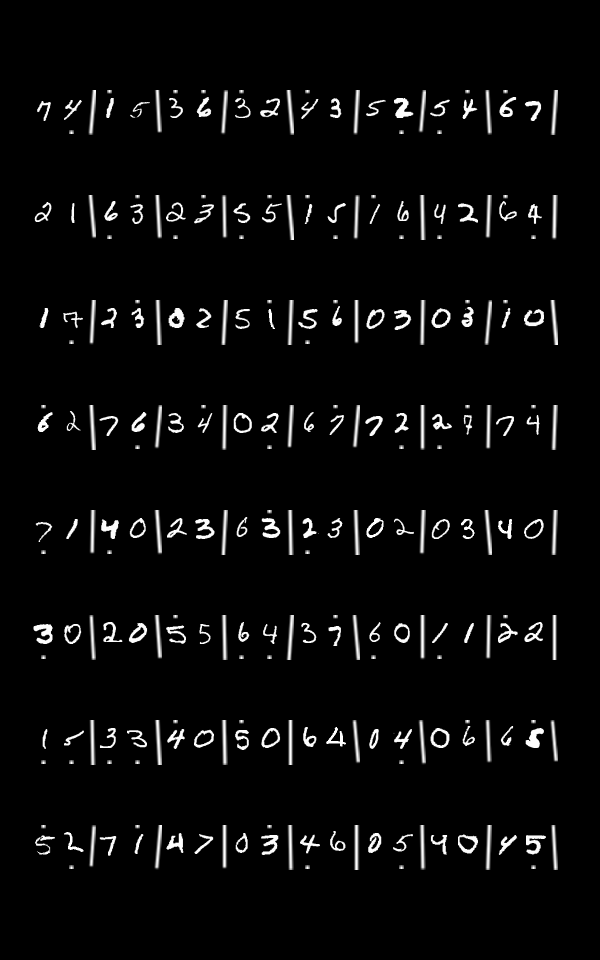 7 4 | 1 5 | 3 6 | 3 2 | 4 3 | 5 2 | 5 4 | 6 7 |
2 1 | 6 3 | 2 3 | 5 5 | 1 5 | 1 6 | 4 2 | 6 4 |
1 7 | 2 3 | 0 2 | 5 1 | 5 6 | 0 3 | 0 3 | 1 0 |
6 2 | 7 6 | 3 4 | 0 2 | 6 7 | 7 2 | 2 7 | 7 4 |
7 1 | 4 0 | 2 3 | 6 3 | 2 3 | 0 2 | 0 3 | 4 0 |
3 0 | 2 0 | 5 5 | 6 4 | 3 7 | 6 0 | 1 1 | 2 2 |
1 5 | 3 3 | 4 0 | 5 0 | 6 4 | 0 4 | 0 6 | 6 5 |
5 2 | 7 1 | 4 7 | 0 3 | 4 6 | 0 5 | 4 0 | 4 5 |